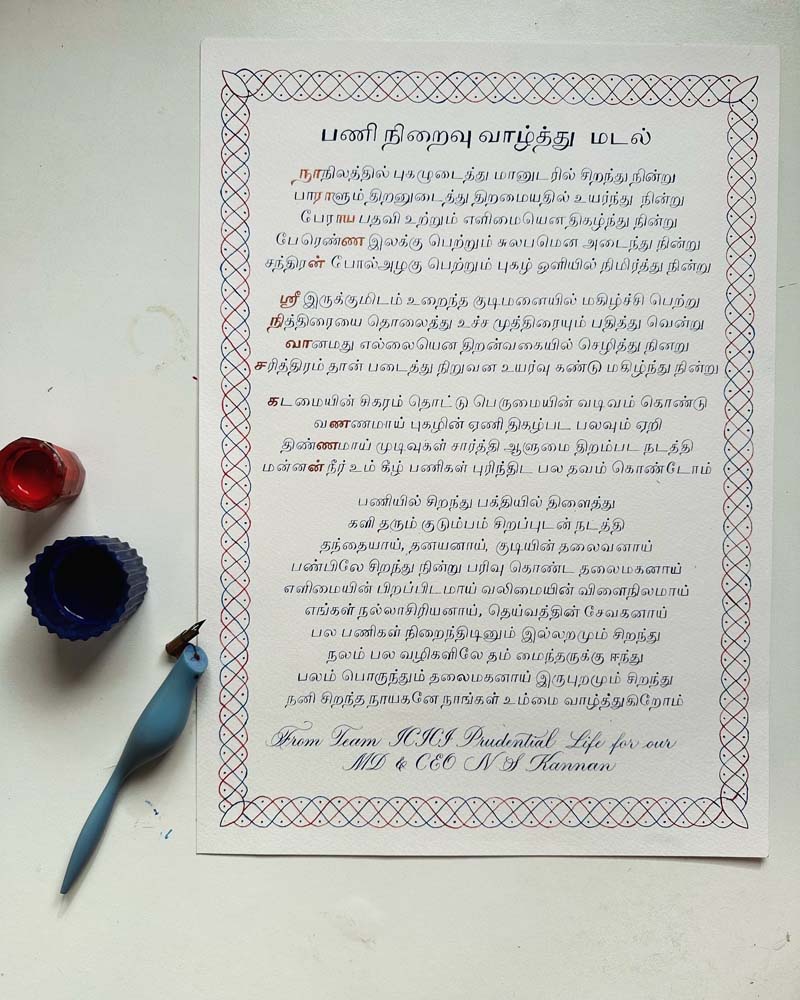 பணி நிறைவு வாழ்த்து மடல்
நாநிலத்தில் புகழுடைத்து மானுடரில் சிறந்து நின்று
பாராளும் திறனுடைத்து திறமையதில் உயர்ந்து நின்று
பேராய பதவி உற்றும் எளிமையென திகழ்ந்து நின்று
பேரெண்ண இலக்கு பெற்றும் சுலபமென அடைந்து நின்று
சந்திரன் போல்அழகு பெற்றும் புகழ் ஒளியில் நிமிர்த்து நின்று
ஸ்ரீ இருக்குமிடம் உறைந்த குடிமனையில் மகிழ்ச்சி பெற்று
நித்திரையை தொலைத்து உச்ச முத்திரையும் பதித்து வென்று
வானமது எல்லையென திறன்வகையில் செழித்து நினறு
சரித்திரம் தான் படைத்து நிறுவன உயர்வு கண்டு மகிழ்ந்து நின்று
கடமையின் சிகரம் தொட்டு பெருமையின் வடிவம் கொண்டு
வணணமாய் புகழின் ஏணி திகழ்பட பலவும் ஏறி
திண்ணமாய் முடிவுகள் சார்த்தி ஆளுமை திறம்பட நடத்தி
மன்னன் நீர் உம் கீழ் பணிகள் புரிந்திட பல தவம் கொண்டோம்
பணியில் சிறந்து பக்தியில் திளைத்து
களி தரும் குடும்பம் சிறப்புடன் நடத்தி
தந்தையாய், தனயனாய், குடியின் தலைவனாய்
பண்பிலே சிறந்து நின்று பரிவு கொண்ட தலைமகனாய்
எளிமையின் பிறப்பிடமாய் வலிமையின் விளைநிலமாய்
எங்கள் நல்லாசிரியனாய், தெய்வத்தின் சேவகனாய்
பல பணிகள் நிறைந்திடினும் இல்லறமும் சிறந்து
நலம் பல வழிகளிலே தம் மைந்தருக்கு ஈந்து
பலம் பொருந்தும் தலைமகனாய் இருபுறமும் சிறந்து
நனி சிறந்த நாயகனே நாங்கள் உம்மை வாழ்த்துகிறோம்
From Team ICICI Prudential Life for our
MD & CEO N S Kannan